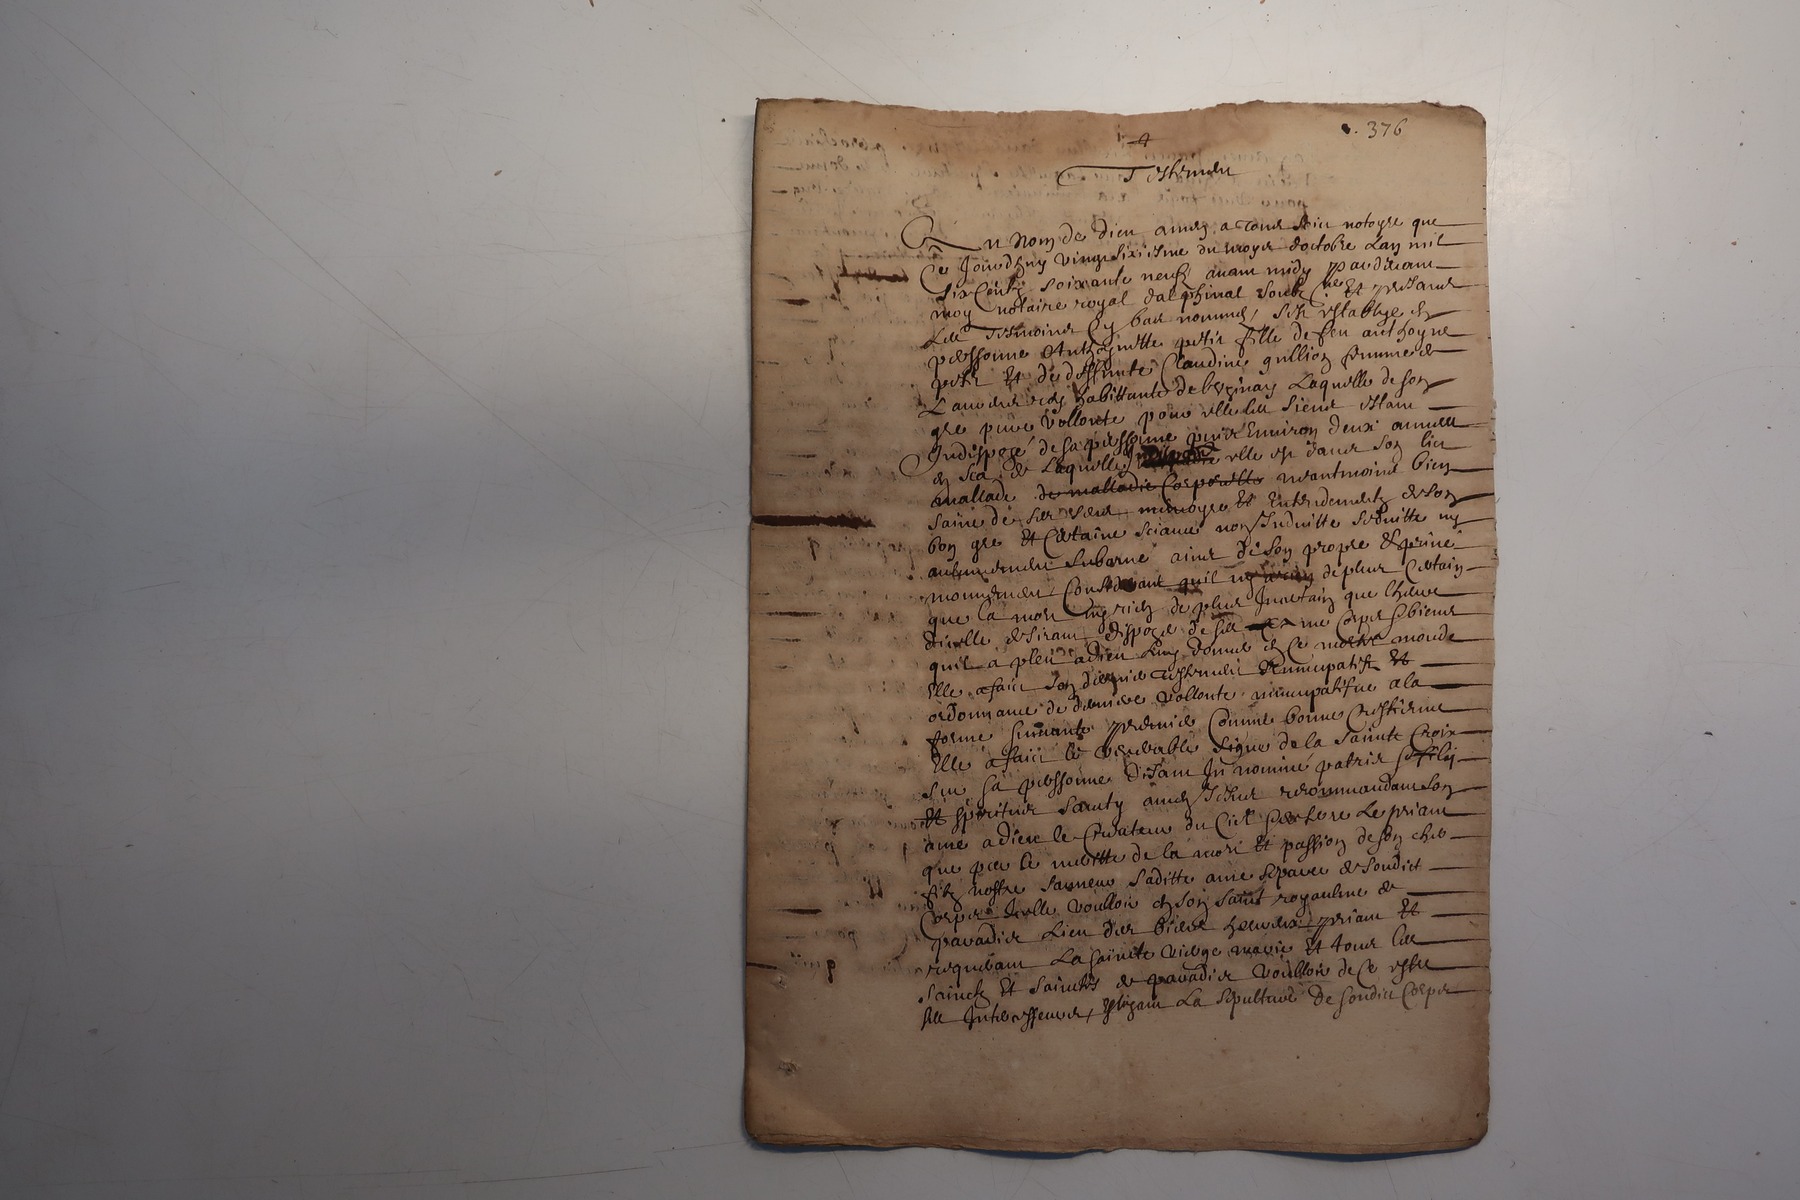 376
Testament
Au Nom de dieu amen a tous soict notoyre que
Ce Jourdhuy vingt sixiesme du moys doctobre Lan mil
six Centz soixante neufz avant midy pardevant
moy notaire royal dalphinal soubz.ne Et presants
Les tesmoins Cy bas nommes, s'est establye en
personne Anthoynette petit fille de feu anthoyne
petit Et de deffunte Claudine gullion femme de
habittante de Laquelle de son
gre pure vollonte pour elle les siens estant
Indispozé de sa personne puis Environ deux annees
en sea, de Laquelle elle est dans son lict
mallade de malladie Corporelle neantmoins bien
saine de ses sens memoyre Et Entendement de son
bon gre Et Certaine sciance non Induitte seduitte ny
aultrement suborné ains de son propre Esprine
mouvement Considerant quil ny a rien de plus Certain
que la mort ny rien de plus Incertain que lheure
dicelle desirant dispozer de ses ame Corps & biens
quil a pleu a dieu Luy donner en Ce mortel monde
Elle a faict son dernier testament Nuncupatif Et
ordonnance de derniere vollonte nuncupatifve a la
forme suivante premier Comme bonne Crestienne
Elle a faict le venerable signe de la sainte Croix
sur sa personne disant In nomine patris & filij
Et spiritus sancty amen Jesus recommandant son
ame a dieu le Createur du Ciel & de la terre Le priant
que par le meritte de la mort Et passion de son cher
filz nostre sauveur saditte ame separee de sondict
Corps Icelle voulloir en son saint royaulme de
paradis Lieu des biens heureux priant Et
requerant La saincte vierge marie Et tous les
saincts Et sainctes de paradis voulloir de Ce estre
ses Intersesseurs, Eslizant La sepulture de sondict Corps